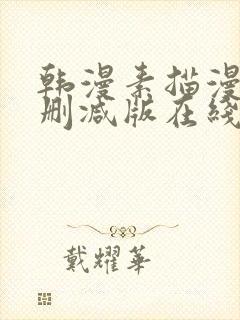 韩漫素描漫
删减版在线
戴耀華